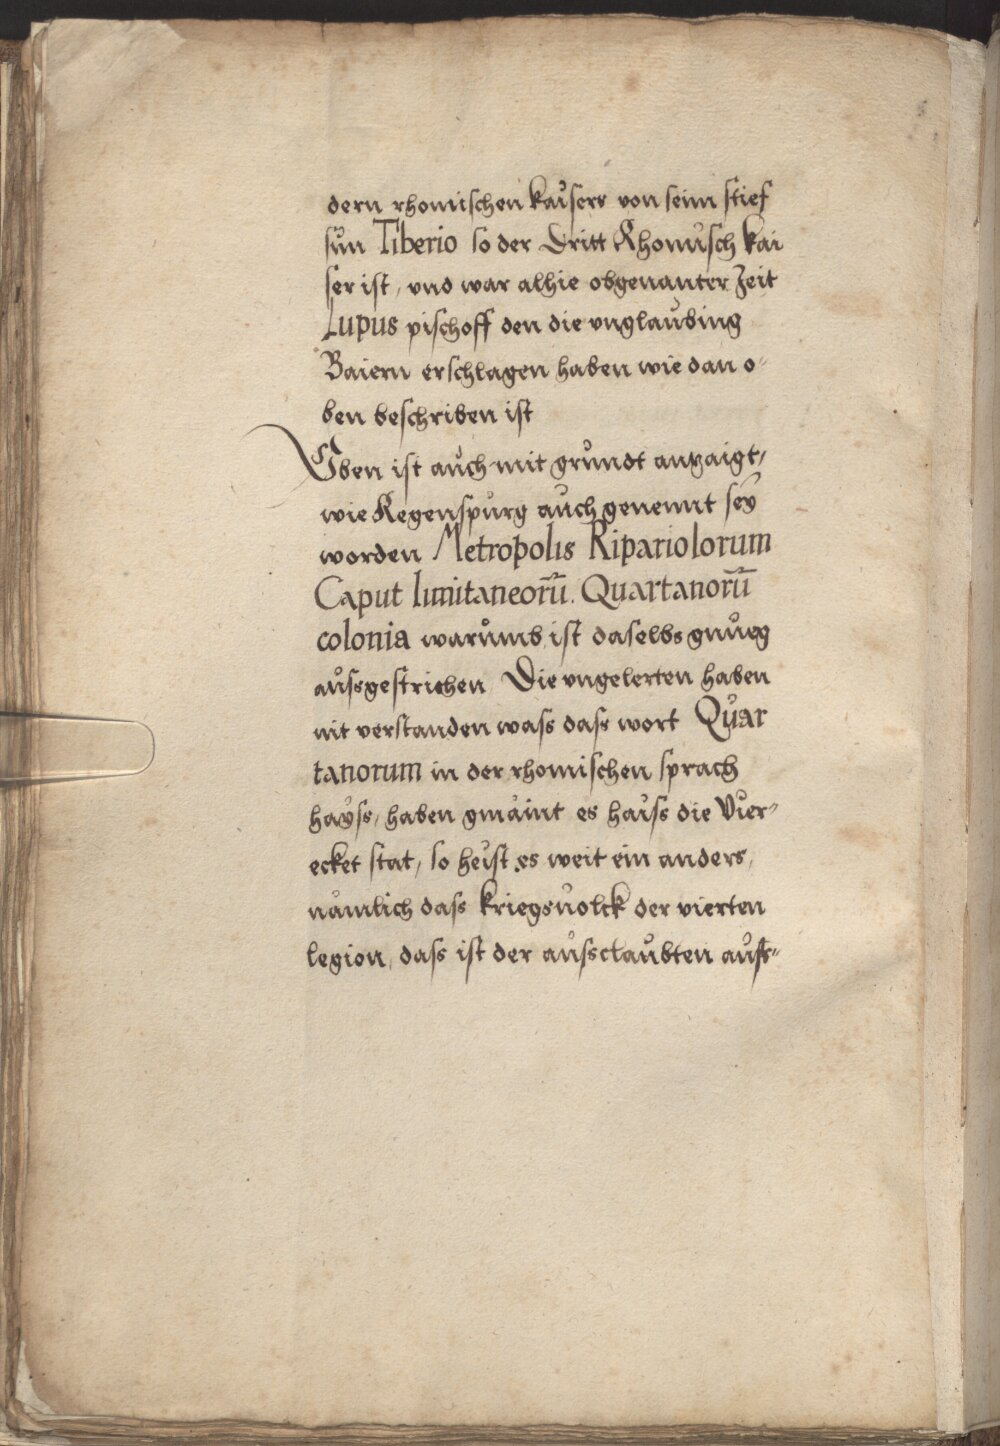 dern rhomischen kaůsers von seim stief
sůn Tiberio so der Dritt Rhomisch kai
ser ist, vnd war alhie obgenanter Zeit
Lupus pischoff den die vnglaůbing
Baiern erschlagen haben wie dan o-
ben beschriben ist
Oben ist aůch mit grůndt anzaigt,
wie Regenspůrg aůch genennt seÿ
worden Metropolis Ripariolorum
Caput limitaneorũ. Quartanorũ
colonia warůmb ist daselbs gnůeg
aůssgestrichen Die vngelerten haben
nit verstanden wass dass wort Quar
tanorum in der rhomischen sprach
haÿss, haben gmaint es haiss die Vier-
ecket stat, so heist es weit ein anders,
nämlich dass kriegsuolck der vierten
legion, dass ist der aůssclaůbten aůss-